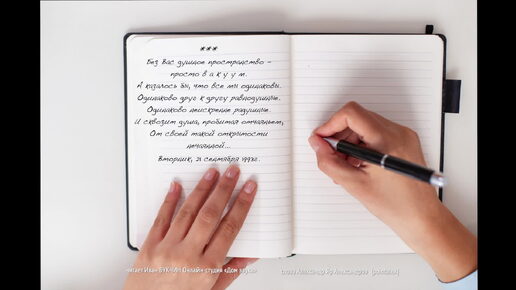 ***
Без Вас душное пространство –
просто в а к у у м.
А казалось бы, что все мы одинаковы.
Одинаково друг к другу равнодушные.
Одинаково неискренне радушные.
И сквозит душа, пробитая отчаяньем,
От своей такой открытости
нечаянной...
Вторник, 21 сентября 1993г.
читает Иван БУКЧИН Онлайн-студия «Дом звука»
слова Александр